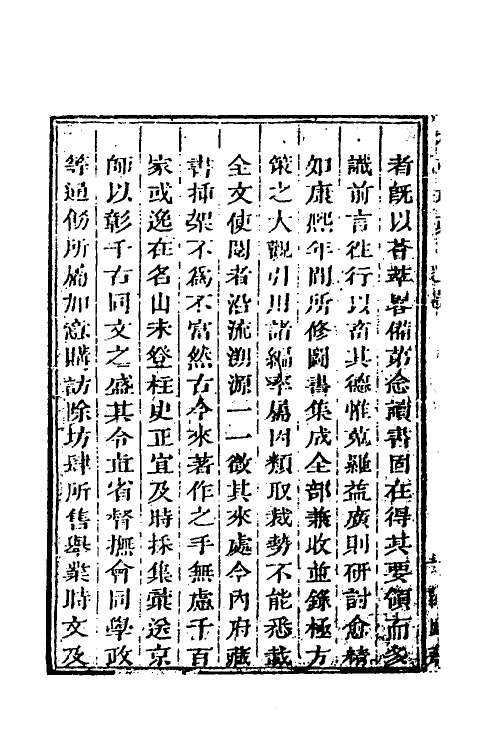 者旣以薈萃畧備第念讀書固在得其要領而多
識前言徃行以畜其德惟蒐羅益廣則硏討愈精
如康熙年間所修圖書集成全部兼收並錄極方
策之大觀引用諸編率屬因類取裁勢不能悉載
全文使閱者沿流溯源一一徵其來處今內府藏
書揷架不爲不富然古今來著作之手無慮千百
家或逸在名山未登柱史正宜及時採集彚送京
師以彰千古同文之盛其令直省督撫會同學政
等通飭所屬加意購訪除坊肆所售舉業時文及